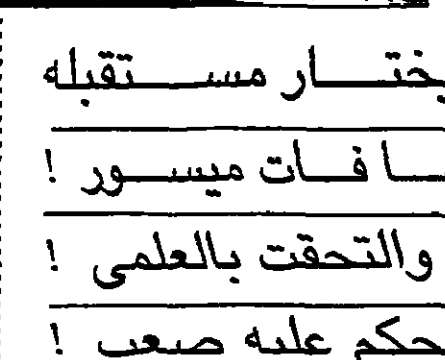 يختار مستقبله
فات ميسور !
والتحقت بالعلمى !
عليه صعب !